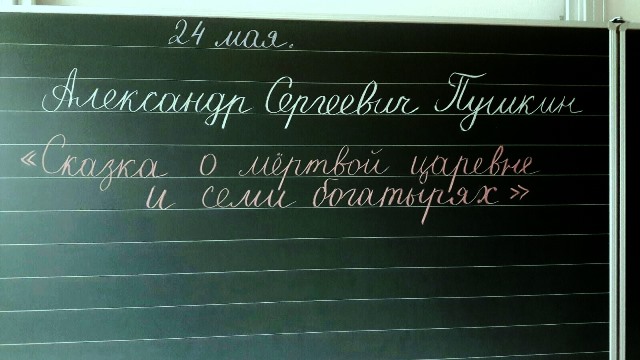 24 мая.
Александр Сергеевич Пушкин
«Сказка о мёртвой царевне
и семи богатырях»